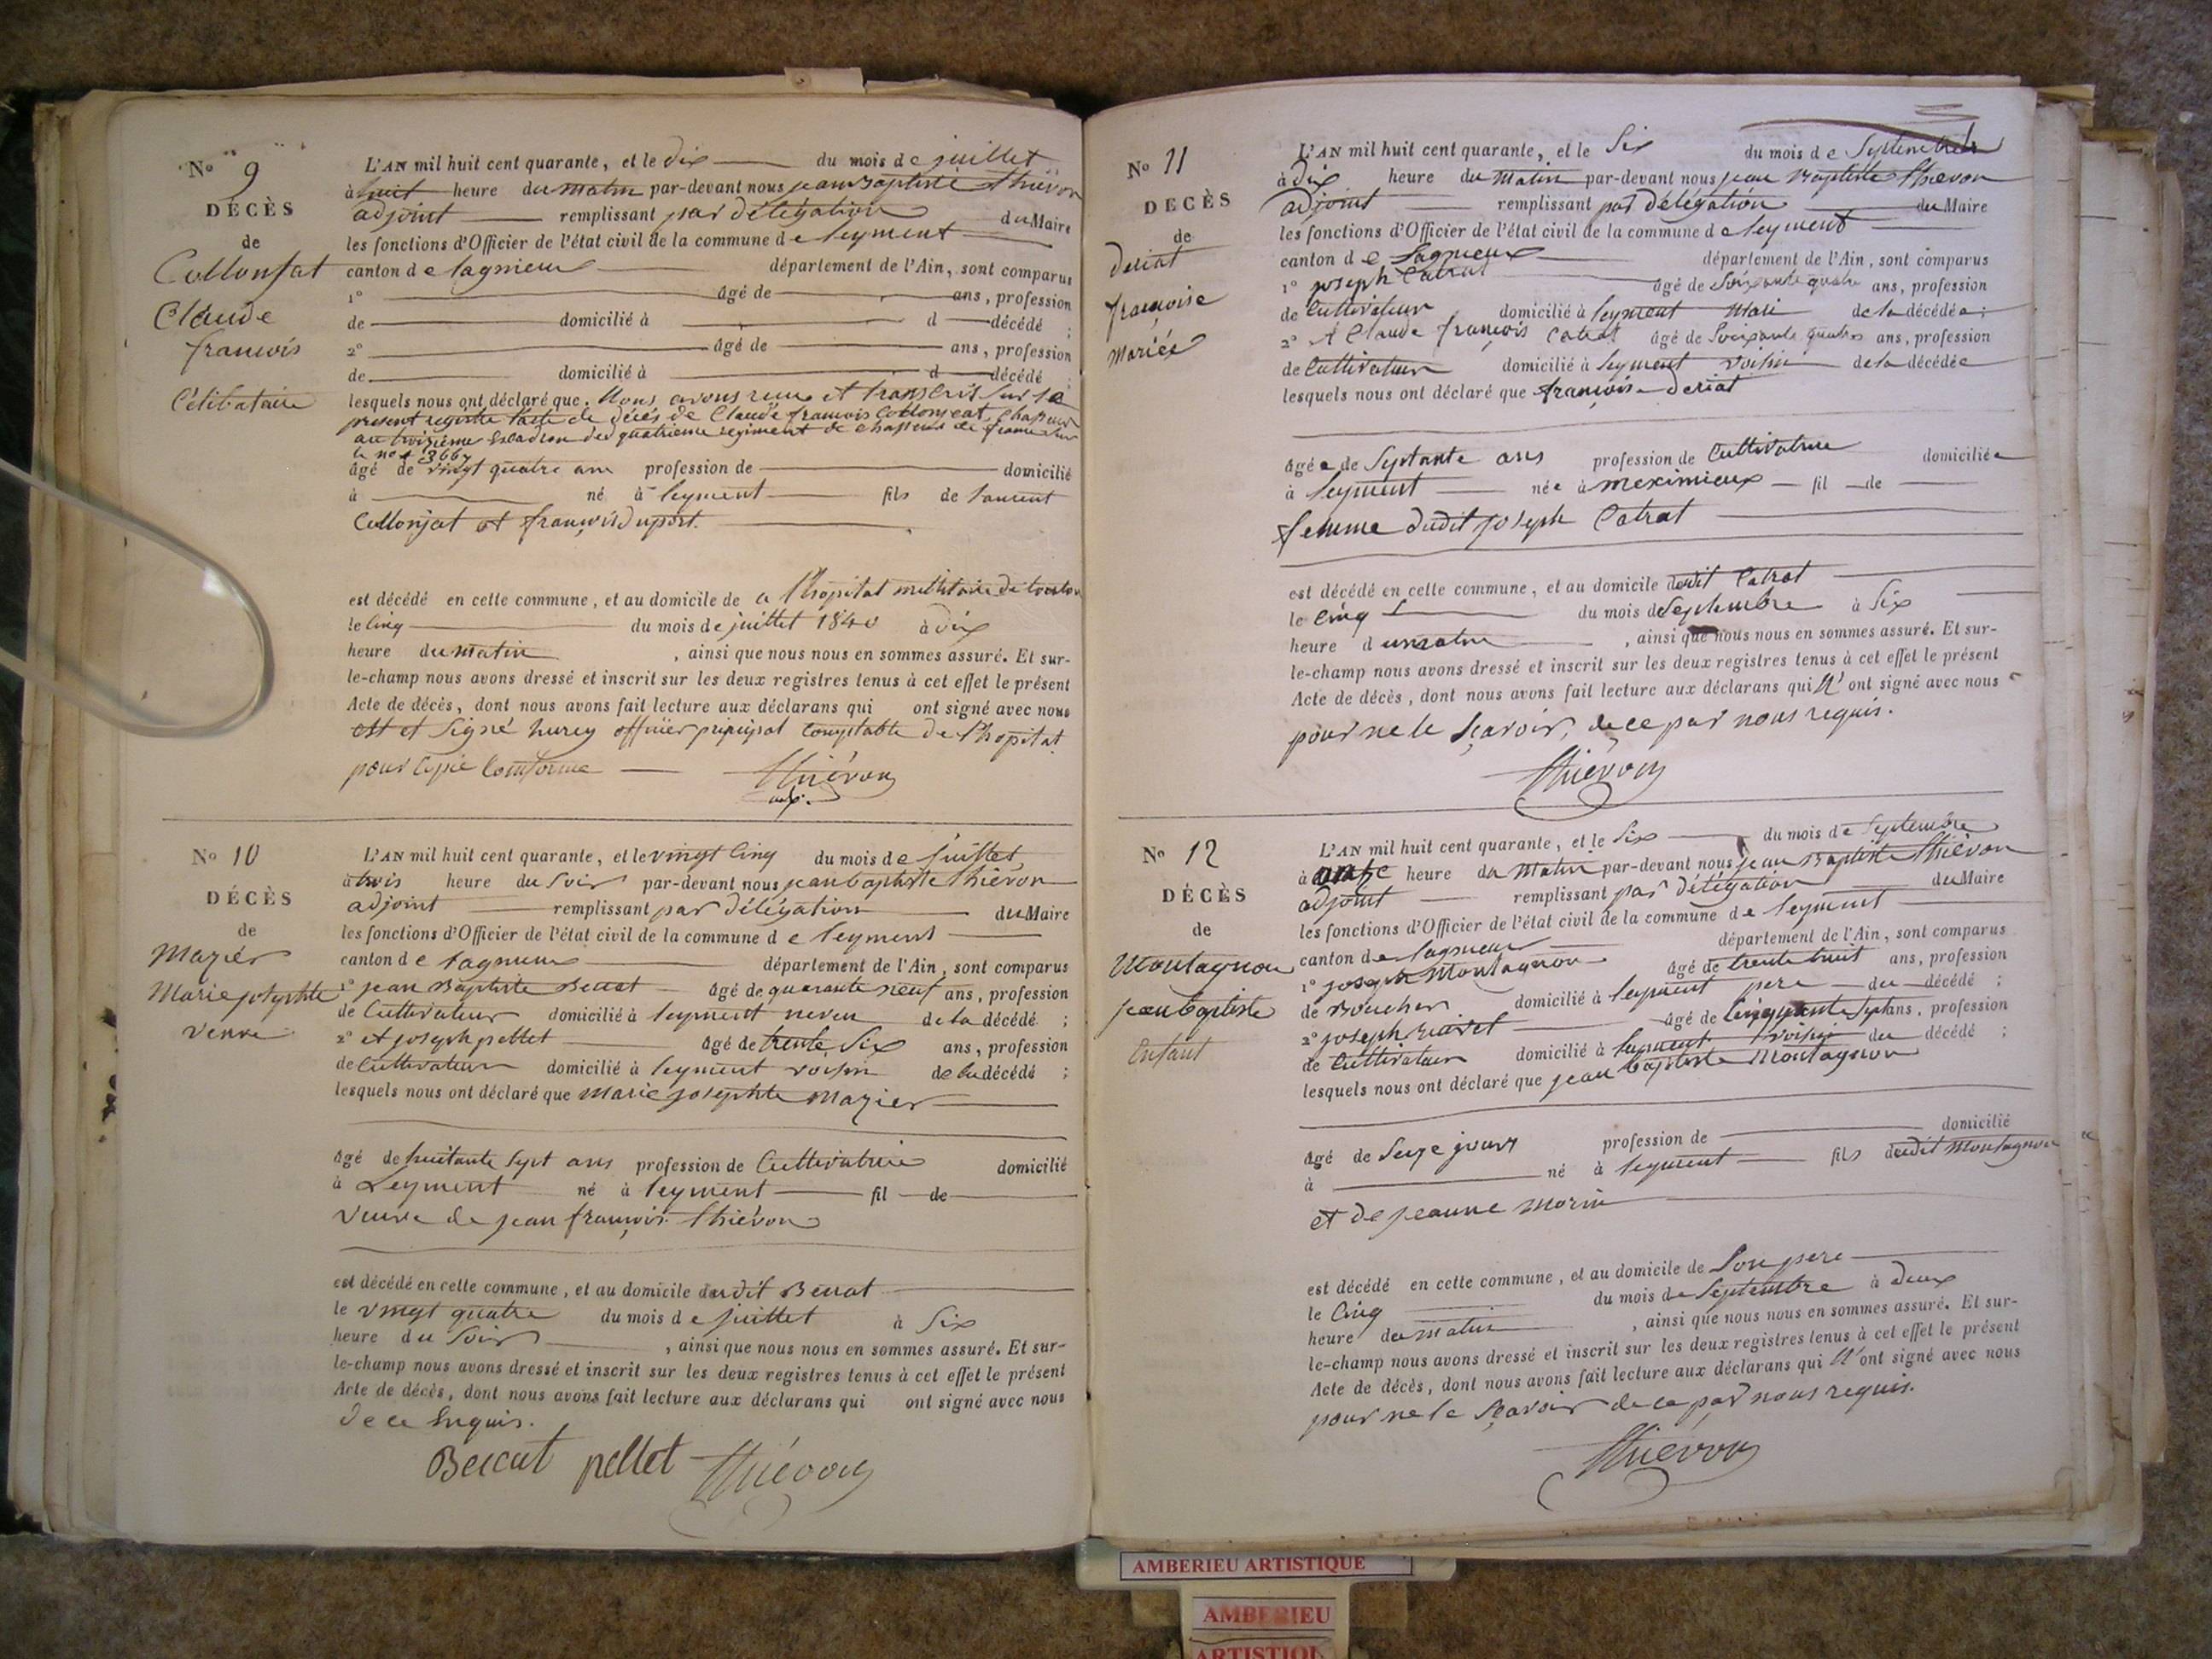 No 9
DÉCÈS
de
Collonjat
Claude
francois
Célibataire
L'AN mil huit cent quarante, et le dix du mois de juillet
à huit heure du matin par-devant nous jean Baptiste thiévon
adjoint remplissant par délégation du Maire
les fonctions d'Officier de l'état civil de la commune de leyment
canton de lagnieu département de l'Ain, sont comparus
1° âgé de ans, profession
de domicilié à d décédé ;
2° âgé de ans, profession
de domicilié à d décédé ;
lesquels nous ont déclaré que. Nous avons reçu et transcrit sur le
present registre l'acte de décès de Claude francois Collonjat, Chasseur
au troisième Escadron du quatrieme regiment de chasseurs
le no 3667
âgé de vingt quatre ans profession de domicilié
à né à leyment fils de laurent
Collonjat et françois duport.
est décédé en cette commune, et au domicile de a l'hopital militaire de toulon
le cinq du mois de juillet 1840 à dix
heure du matin, ainsi que nous nous en sommes assuré. Et sur-
le-champ nous avons dressé et inscrit sur les deux registres tenus à cet effet le présent
Acte de décès, dont nous avons fait lecture aux déclarans qui ont signé avec nous
est et signé hurey officier principal Comptable de l'hopital
pour Copie Conforme thiévon
adj.
No 10
DÉCÈS
de
Mazier
Marie josephte
veuve
L'AN mil huit cent quarante, et le vingt cinq du mois de juillet
à trois heure du soir par-devant nous jean baptiste thiévon
adjoint remplissant par délégation du Maire
les fonctions d'Officier de l'état civil de la commune de leyment
canton de lagnieu département de l'Ain, sont comparus
1° jean Baptiste Beccat âgé de quarante neuf ans, profession
de Cultivateur domicilié à leyment neveu de la décédé ;
2° et joseph pellet âgé de trente six ans, profession
de Cultivateur domicilié à leyment voisin de la décédé ;
lesquels nous ont déclaré que marie josephte mazier
âgé de huitante sept ans profession de Cultivatrice domicilié
à Leyment né à leyment fil de
veuve de jean françois thiévon
est décédé en cette commune, et au domicile dudit Beccat
le vingt quatre du mois de juillet à six
heure du soir, ainsi que nous nous en sommes assuré. Et sur-
le-champ nous avons dressé et inscrit sur les deux registres tenus à cet effet le présent
Acte de décès, dont nous avons fait lecture aux déclarans qui ont signé avec nous
de ce enquis.
Beccat pellet thiévon
No 11
DÉCÈS
de
deriat
françoise
mariée
L'AN mil huit cent quarante, et le six du mois de Septembre
à dix heure du matin par-devant nous jean Baptiste thievon
adjoint remplissant par délégation du Maire
les fonctions d'Officier de l'état civil de la commune de leyment
canton de Lagnieu département de l'Ain, sont comparus
1° joseph Catrat âgé de soixante quatre ans, profession
de Cultivateur domicilié à leyment mari de la décédée ;
2° et Claude françois Catrat âgé de soixante quatre ans, profession
de Cultivateur domicilié à leyment voisin de la décédée
lesquels nous ont déclaré que françoise deriat
âgée de septante ans profession de Cultivatrice domiciliée
à leyment née à meximieux fil de
femme dudit joseph Catrat
est décédé en cette commune, et au domicile dudit Catrat
le cinq du mois de septembre à six
heure du matin, ainsi que nous nous en sommes assuré. Et sur-
le-champ nous avons dressé et inscrit sur les deux registres tenus à cet effet le présent
Acte de décès, dont nous avons fait lecture aux déclarans qui n'ont signé avec nous
pour ne le sçavoir, de ce par nous requis.
thiévon
No 12
DÉCÈS
de
Montagnon
jean baptiste
Enfant
L'AN mil huit cent quarante, et le six du mois de Septembre
à onze heure du matin par-devant nous jean Baptiste thiévon
adjoint remplissant par délégation du Maire
les fonctions d'Officier de l'état civil de la commune de leyment
canton de lagnieu département de l'Ain, sont comparus
1° joseph Montagnon âgé de trente huit ans, profession
de Boucher domicilié à leyment pere du décédé ;
2° joseph âgé de cinquante sept ans, profession
de Cultivateur domicilié à leyment voisin du décédé ;
lesquels nous ont déclaré que jean baptiste Montagnon
âgé de seize jours profession de domicilié
à né à leyment fils dudit Montagnon
et de jeanne morin
est décédé en cette commune, et au domicile de son pere
le cinq du mois de Septembre à deux
heure du matin, ainsi que nous nous en sommes assuré. Et sur-
le-champ nous avons dressé et inscrit sur les deux registres tenus à cet effet le présent
Acte de décès, dont nous avons fait lecture aux déclarans qui n'ont signé avec nous
pour ne le sçavoir de ce par nous requis.
thiévon
AMBERIEU ARTISTIQUE
AMBERIEU
ARTISTIQU